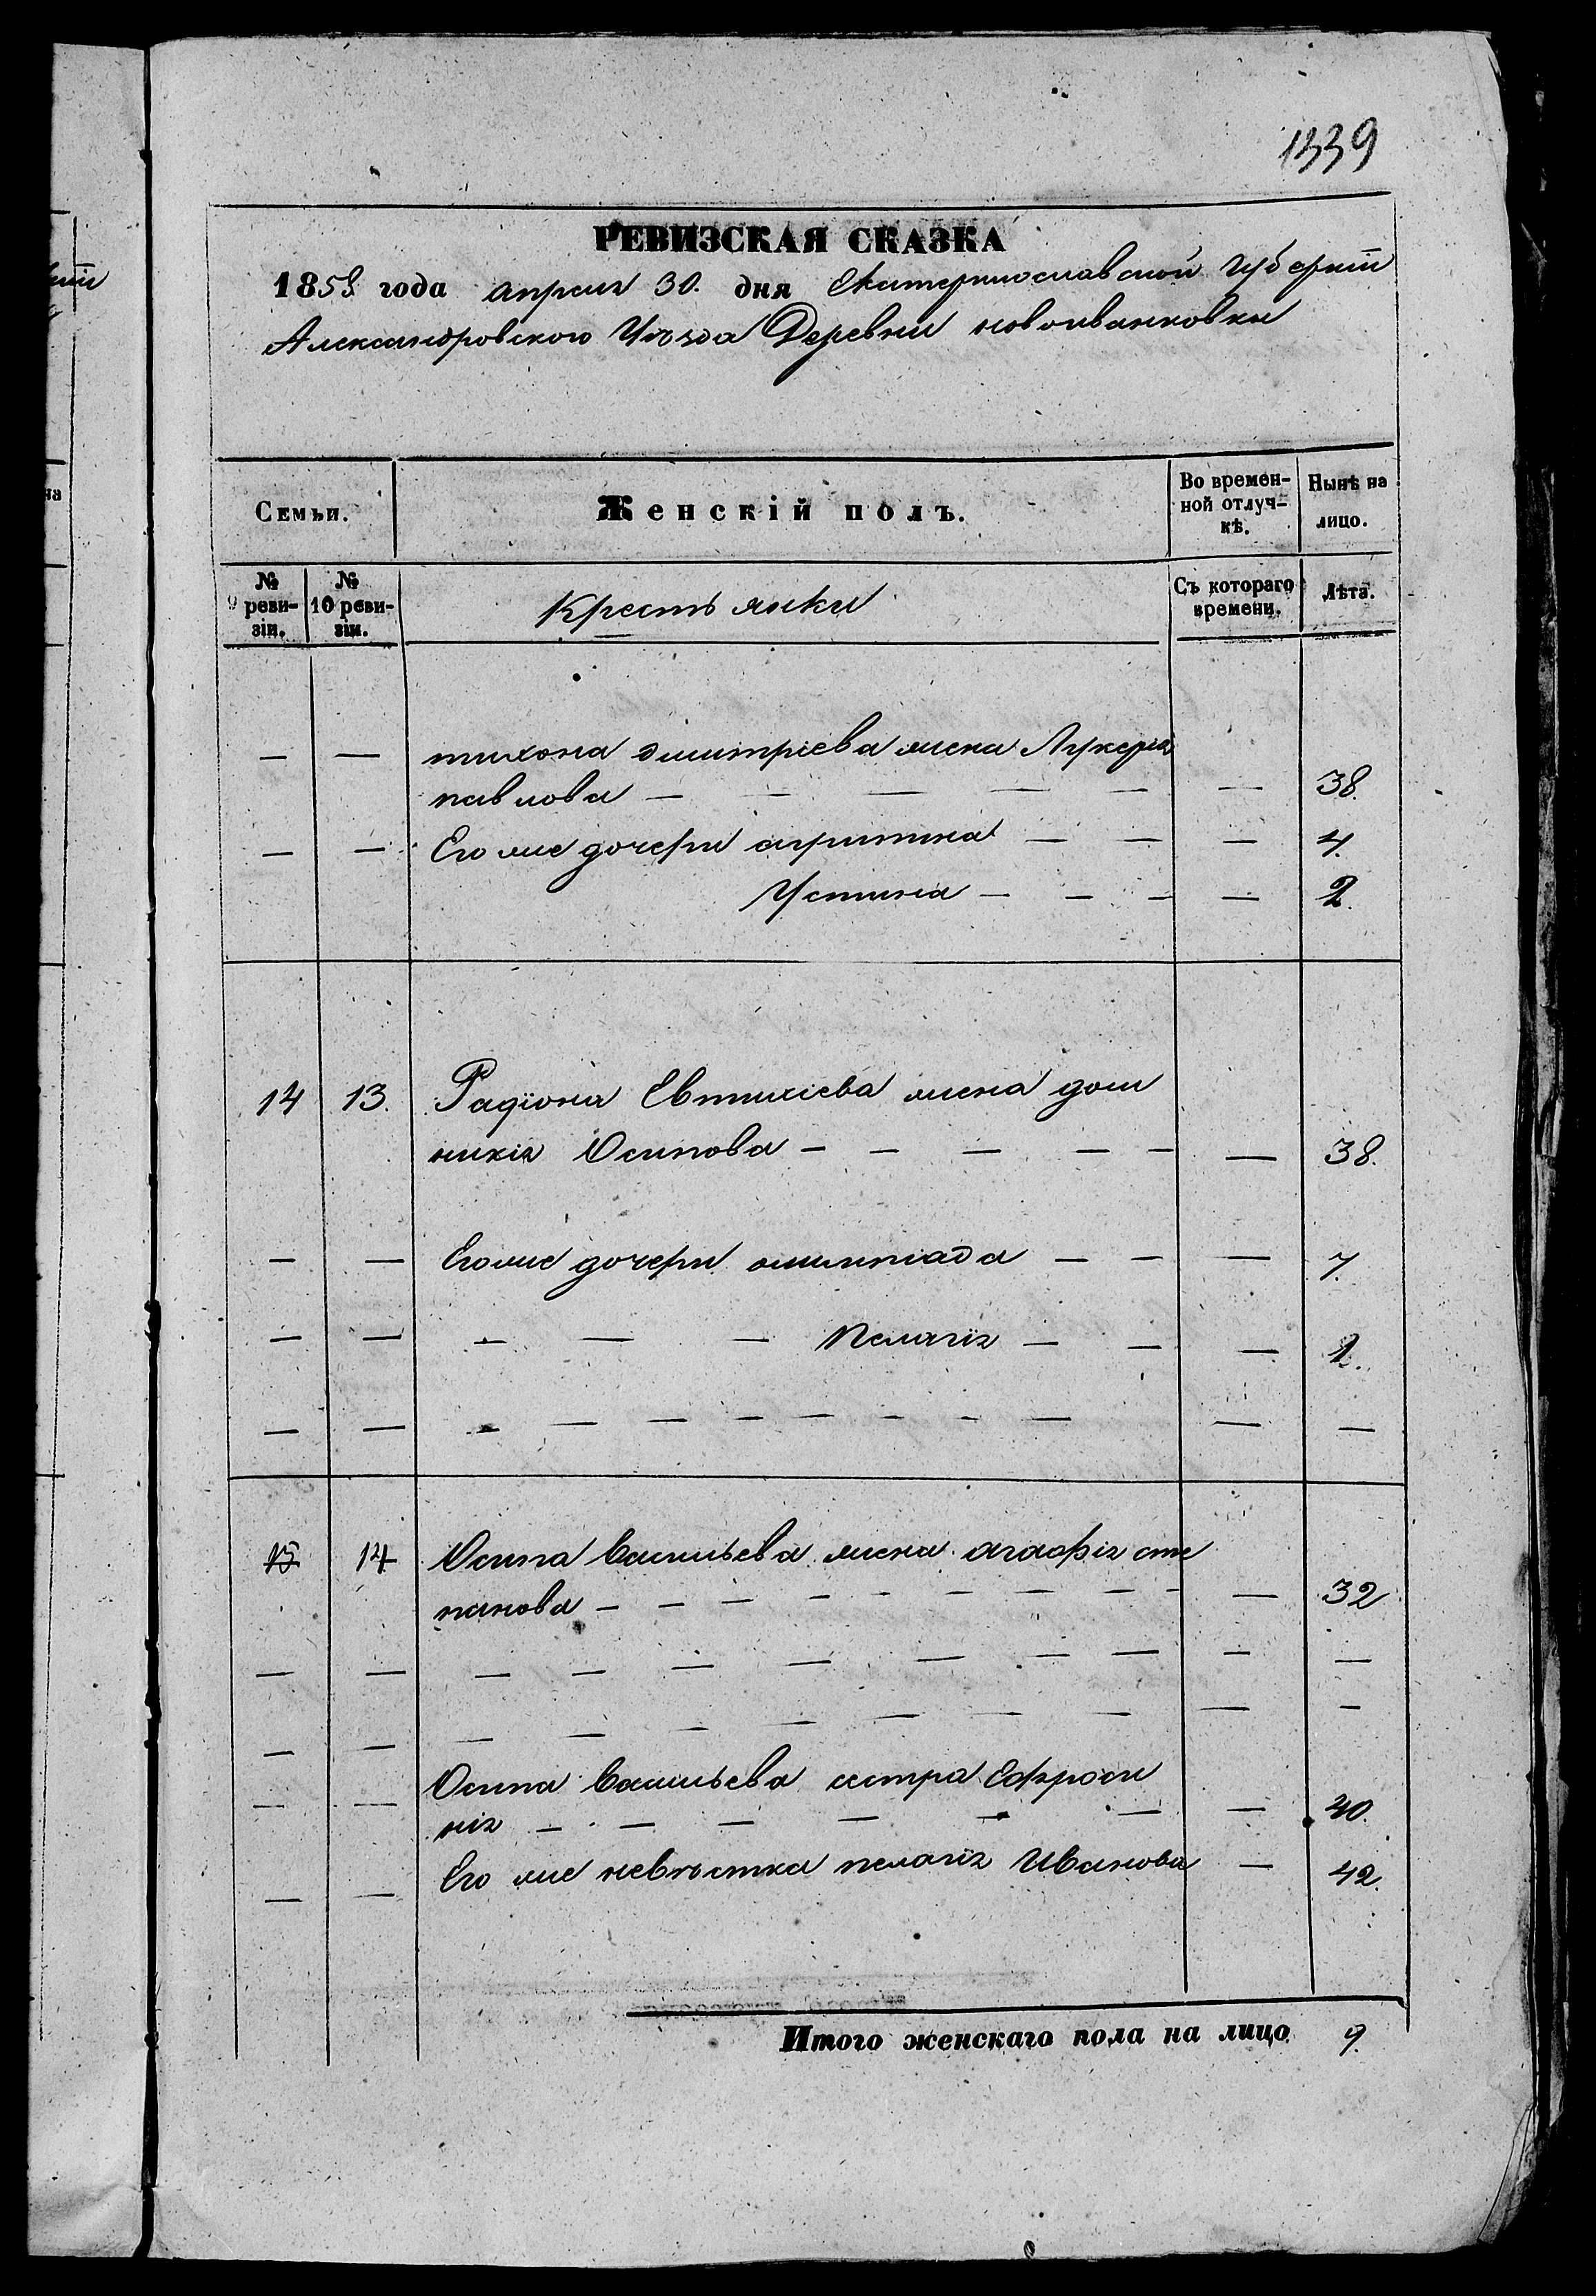 1339
РЕВИЗСКАЯ СКАЗКА
1858 года апреля 30. дня Екатеринославской губернiи
Александровского Уѣзда Деревни новоивановки
Семьи.
Женскiй полъ.
Во времен-
ной отлуч-
кѣ.
Нынѣ на
лицо.
№
9 реви-
зiи.
№
10 реви-
зiи.
Крестьянки
Съ котораго
времени.
Лѣта.
— — тихона дмитрiева жена Лукерiя
павлова — — — — — — 38.
— — Его же дочери агрипина — — — 4.
Устина — — — — 2.
14 13. Радiона Евтихiева жена дом
никiя Осипова — — — — — — 38.
— — Его же дочери олимпiада — — — 7.
— — — — — Пелагiя — — — 1.
— — — — — — — — — — — —
15 14 Осипа Васильева жена агафiя сте
панова — — — — — — — — — 32
— — — — — — — — — — —
— — — — — — — — — — —
— — Осипа Васильева сестра Ефроси
нiя — — — — — — — 40.
— — Его же невѣстка пелагiя Иванова — 42.
Итого женскаго пола на лицо 9.